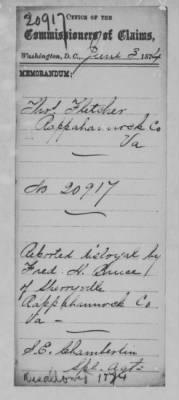 20917
OFFICE OF THE
Commissioners of Claims,
Washington, D.C., June 3, 1874
MEMORANDUM:
Thos Fletcher
Rappahannock Co
Va
No 20917
Reported disloyal by
Fred. H. Bruce
of Sperryville
Rappahannock Co
Va -
S.E. Chamberlin
Spl. Agt.
1874